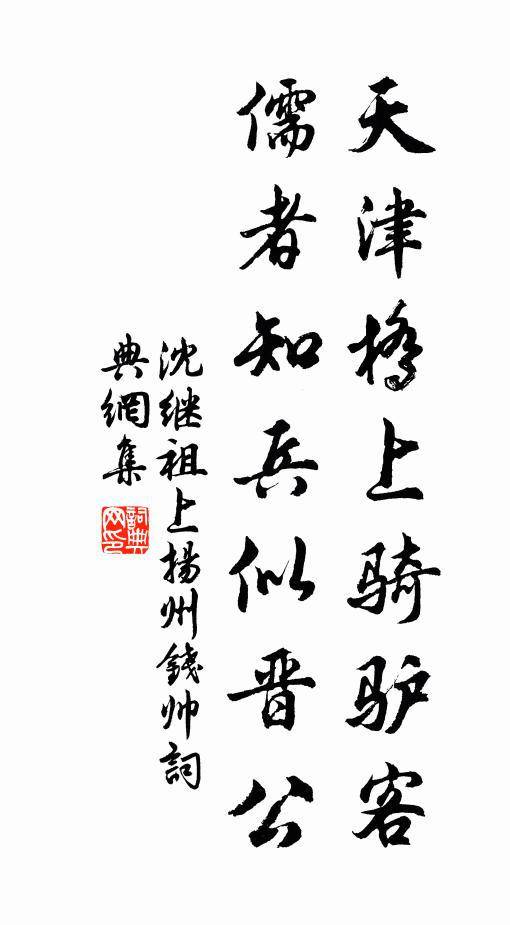 天津橋上骑驴客
儒者知兵似晋公
沈继祖上揚州錢帅詞
典網集
詞典
网印